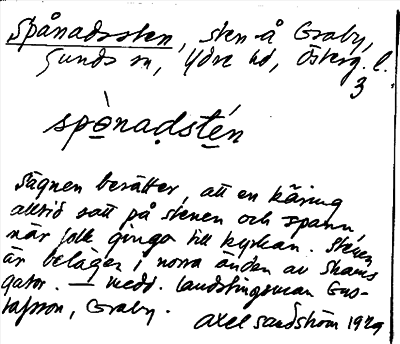 Spånadssten, sten å Graby,
Sunds sn, Ydre hd, Österg. l.
3
spò̱nadsté̱n
Sägnen berätter, att en käring
alltid satt på stenen och spann,
när folk gingo till kyrkan. Stenen
är belägen i norra änden av Skams
gator. — Medd. landstingsman Gus-
tafsson, Graby.
Axel Sandström 1929